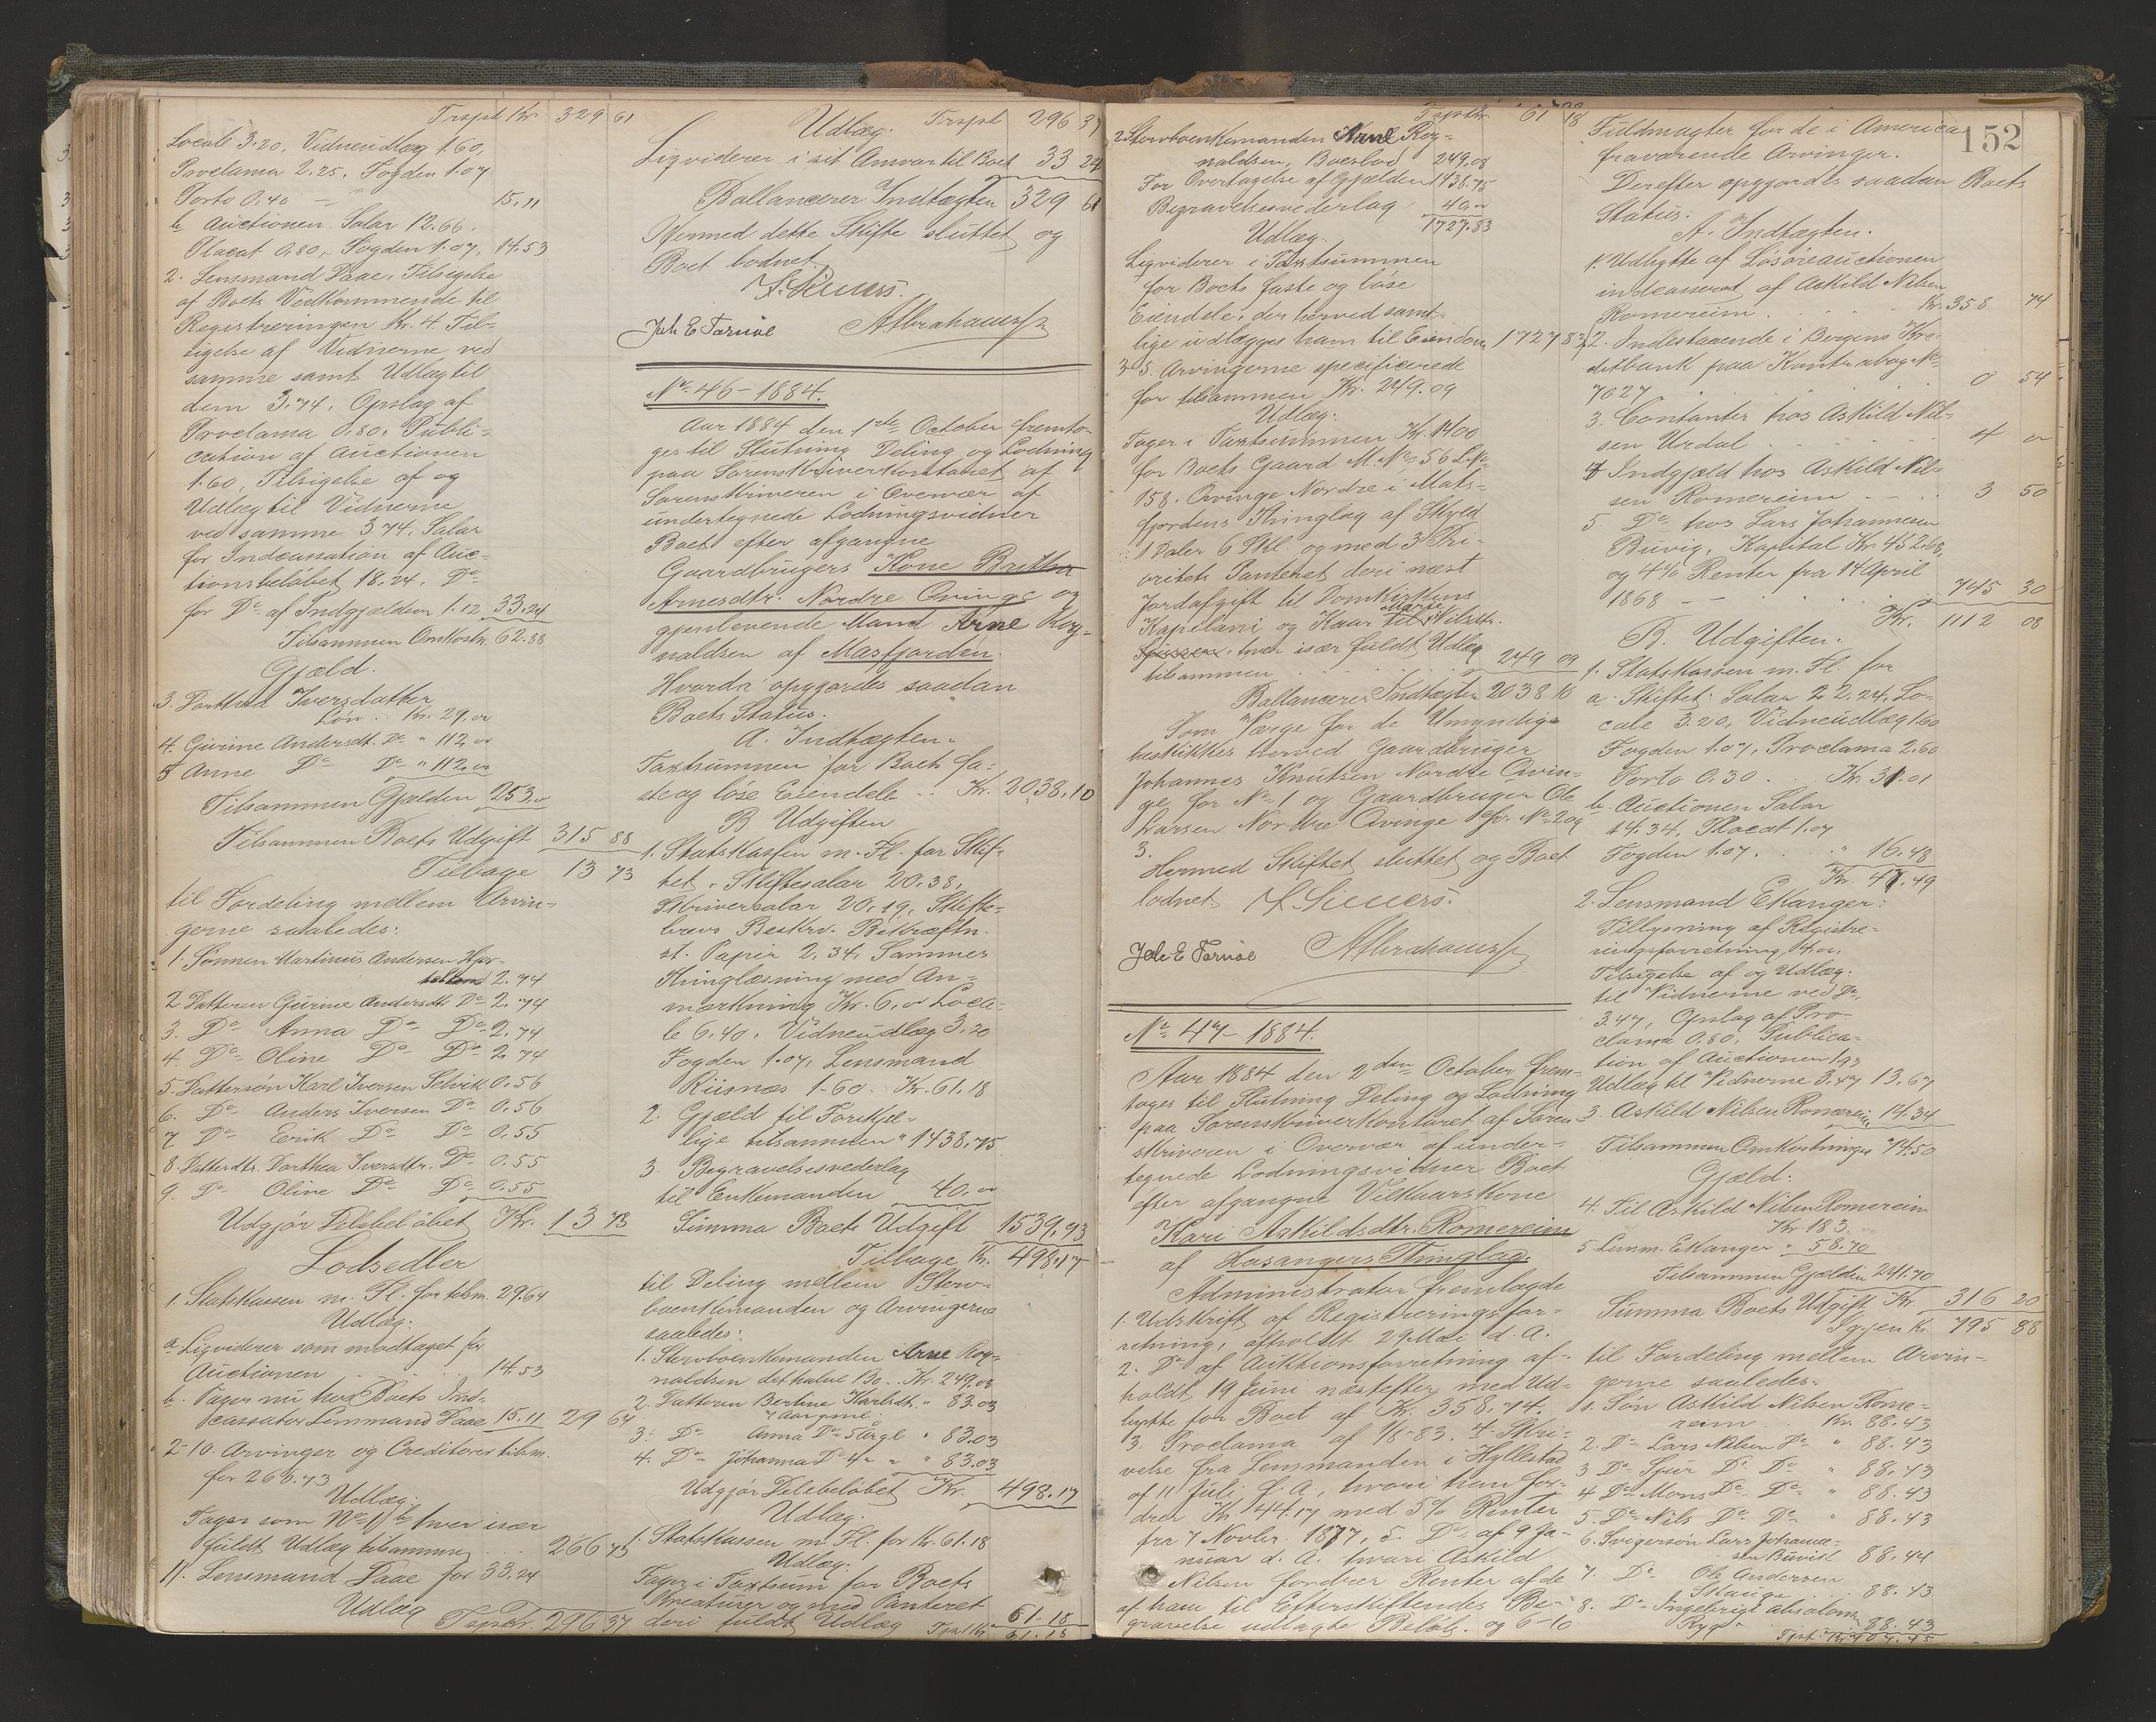 Trspt Kr. 329 61
Locale 3.20, Vidneudlæg 1.60,
Proclama 2.25. Fogden 1.07
Porto 0.40 — 15.11
b. Auctionen Salar 12.66.
Placat 0.80, Fogden 1.07, 14.53
2. Lensmand Daae, Tilsigelse
af Boets Vedkommende til
Registreringen Kr. 4. Til-
sigelse af Vidnerne ved
samme samt Udlæg til
dem 3.74. Opslag af
Proclama 0.80. Publi-
cation af Auctionen
1.60, Tilsigelse af og
Udlæg til Vidnerne
ved samme 3.74, Salar
for Indcassation af Auc-
tionsbeløbet 18.24. Do
for Do af Indgjælden 1.12 33.24
Tilsammen Omkostn. 62.88
Gjæld.
3. Dorthea Iversdatter
Løn .. Kr. 29.00
4. Gurine Andersdt. Do " 112.00
5 Anne Do Do " 112.00
Tilsammen Gjælden 253.00
Tilsammen Boets Udgift 315 88
Tilbage 13 73
til Fordeling mellem Arvin-
gerne saaledes:
1. Sønnen Martinus Andersen
2.74
2 Datteren Gurine Andersdt. Do 2.74
3. Do Anna Do Do 2.74
4. Do Oline Do Do 2.74
5. Dattersøn Karl Iversen Selvik 0.56
6. Do Anders Iversen Do 0.56
7 Do Eerik Do Do 0.55
8. Datterdtr. Dorthea Iversdtr. Do 0.55
9. Do Oline Do Do 0.55
Udgjør Delebeløbet Kr. 13 73
Lodsedler
1. Statskassen m. Fl. for tilsm. 29.64
Udlæg:
a Liqviderer som modtaget for
Auctionen . . . 14.53
b. Tager nu hos Boets Ind-
cassator Lensmand Daae 15.11 29 64
2-10. Arvinger og Creditorer tilsm.
for 266.73
Udlæg:
Tager som No 1 b hver især
fuldt Udlæg tilsammen . . 266 73
11. Lensmand Daae for 33.24
Udlæg
Tspt Kr. 296 37
Udlæg. Trspt 296 37
Liqviderer i sit Ansvar til Boet 33 24
Ballancerer Indtægten 329 61
Hermed dette Skifte sluttet og
Boet lodnet.
Joh E Tornøe
No 46 – 1884.
Aar 1884 den 1ste October foreto-
ges til Slutning Deling og Lodning
paa Sorenskriverkontoret af
Sorenskriveren i Overvær af
undertegnede Lodningsvidner
Boet efter afgangne
Gaardbrugers Kone Britha
Arnesdtr. Nordre Qvinge og
gjenlevende Mand Arne Rog-
naldsen af Masfjorden.
Hvorda opgjordes saadan
Boets Status:
A. Indtægten.
Taxtsummen for Boets fa-
ste og løse Eiendele .. Kr. 2038.10
B Udgiften
1. Statskassen m. Fl. for Skif-
tet. Skiftesalar 20.38,
Skriversalar 20.19, Skifte-
brevs Beskrv. Bekræftn.
st. Papir 2.34, Sammes
Thinglæsning med An-
mærkning Kr. 6.00 Loca-
le 6.40. Vidneudlæg 3.20
Fogden 1.07, Lensmand
Riisnæs 1.60. Kr. 61.18
2. Gjæld til Forskjel-
lige tilsammen " 1438.75
3. Begravelsesvederlag
til Enkemanden 40.00
Summa Boets Udgift 1539.93
Tilbage Kr. 498.17
til Deling mellem Sterv-
boenkemanden og Arvingerne
saaledes:
1. Stervboenkemanden Arne Rog-
naldsen det halve Bo. . Kr. 249.08
2. Datteren Bertine Karlsdt. " 83.03
7 Aar gml.
3. Do Anna Do 5 Aar gl. " 83.03
4. Do Johanna Do 4 " " 83.03
Udgjør Delebeløbet Kr. 498.17
Udlæg.
1. Statskassen m. Fl. for Kr. 61.18
Udlæg:
Tager i Taxtsum for Boets
Kreaturer og med Panteret
deri fuldt Udlæg 61.18
Tspt Kr. 61.18
152
Tspt Kr. 61 18
2. Stervboenkemanden Arne Rog-
naldsen, Boeslod 249.08
For Overtagelse af Gjælden 1438.75
Begravelsesvederlag 40.00
1727.83
Udlæg.
Liqviderer i Taxtsummen
for Boets faste og løse
Eiendele, der herved samt-
lige udlægges ham til Eiendom 1727 83
3-5. Arvingerne specificerede
for tilsammen Kr. 249.09
Udlæg:
Tager i Taxtsummen Kr. 1400
for Boets Gaard M. No 56 L. No
158. Qvinge Nordre i Mas-
fjordens Thinglag af Skyld
1 Daler 6 Skl og med 3 Pri-
oritets Panteret deri næst
Jordafgift til Domkirkens
Kapelani og Kaar til Marie Nilsdtr.
hver især fuldt Udlæg
tilsammen . . . 249 09
Ballancerer Indtægten 2038 10
Som Værge for de Umyndige
beskikkes herved Gaardbruger
Johannes Knutsen Nordre Qvin-
ge for No 1 og Gaardbruger Ole
Larsen Nordre Qvinge for No 2 og
3.
Hermed Skiftet sluttet og Boet
lodnet.
Joh E Tornøe
No 47 – 1884.
Aar 1884 den 2den October frem-
toges til Slutning Deling og Lodning
paa Sorenskriverkontoret af Soren
skriveren i Overvær af under-
tegnede Lodningsvidner Boet
efter afgangne Vilkaarskone
Kari Askildsdtr. Romereim
af Hosangers Thinglag.
Administrator fremlagde
1. Udskrift af Registreringsfor-
retning, afholdt 29 Mai d. A.
2. Do af Auktionsforretning af-
holdt 19 Juni næstefter med Ud-
bytte for Boet af Kr. 358.74.
3. Proclama af 1/8-83. 4. Skri-
velse fra Lensmanden i Hyllestad
af 11 Juli f. A., hvori han for-
drer Kr. 44.17 med 5% Renter
fra 7 Novbr. 1877, 5. Do af 9 Ja-
nuar d. A. hvori Askild
Nilsen fordrer Renter af de
af ham til Efterskiftendes Be-
gravelse udlagte Beløb. og 6-10
Fuldmagter for de i America
fraværende Arvinger.
Derefter opgjordes saadan Boets
Status:
A. Indtægten.
1. Udbytte af Løsøreauctionen
indcasseret af Askild Nilsen
Romereim . . . Kr. 358 74
2. Indestaaende i Bergens Kre-
ditbank paa Kontrabog No
7027 . . . 0 54
3. Contanter hos Askild Nil-
sen Urdal . . . 4 00
4 Indgjæld hos Askild Nil-
sen Romereim . . 3 50
5 Do hos Lars Johannesen
Buvig, Kapital Kr. 452.68,
og 4% Renter fra 14 April
1868 — . . . 745 30
Kr. 1112 08
B. Udgiften.
1. Statskassen m. Fl. for
a. Skiftet: Salar 22.24, Lo-
cale 3.20, Vidneudlæg 1.60
Fogden 1.07, Proclama 2.60
Porto 0.30 . . Kr. 31.01
b. Auctionen Salar
14.34, Placat 1.07
Fogden 1.07. . " 16.48
Kr. 47.49
2. Lensmand Ekanger:
Tillysning af Registre-
ringsforretning
Tilsigelse af og Udlæg:
til Vidnerne ved Do.
3.47, Opslag af Pro-
clama 0.80, Publica-
tion af Auctionen 1.93
Udlæg til Vidnerne 3.47 13.67
3. Askild Nilsen Romereim 14.34
Tilsammen Omkostninger 74.50
Gjæld:
4. Til Askild Nilsen Romereim
Kr. 183.
5 Lensm. Ekanger " 58.70
Tilsammen Gjælden 241.70
Summa Boets Udgift Kr. 316 20
Igjen Kr. 795 88
til Fordeling mellem Arvin-
gerne saaledes:
1. Søn Askild Nilsen Rome-
reim . . Kr. 88.43
2. Do Lars Nilsen Do " 88.43
3 Do Sjur Do Do " 88.43
4 Do Mons Do Do " 88.43
5. Do Nils Do Do " 88.43
6. Svigersøn Lars Johanne-
sen Buvik 88.44
7. Do Ole Andersen
Skauge . . 88.43
8. Do Ingebrigt Absalons
Ryg . . 88.43
Tpt. Kr. 707.45